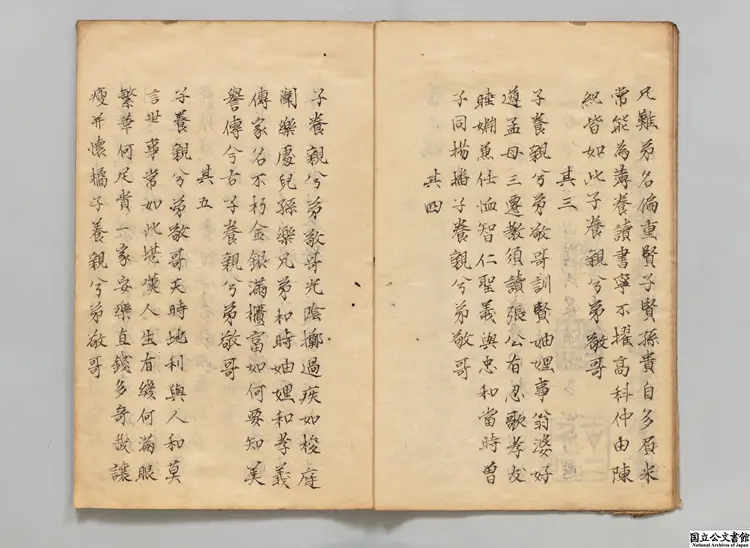 兄難弟名偏重賢子賢孫貴自多負米
常能為薄養讀書寧不擢高科仲由陳
紀皆如此子養親兮弟敬哥
其三
子養親兮弟敬哥訓賢妯娌事翁婆好
遵孟母三遷教須讀張公百忍歌孝友
睦婣兼任恤智仁聖義與忠和當時曾
子同揚播子養親兮弟敬哥
其四
子養親兮弟敬哥光陰擲過疾如梭庭
闈樂處兒孫樂兄弟和時妯娌和孝義
傳家名不朽金銀滿櫃富如何要知美
譽傳今古子養親兮弟敬哥
其五
子養親兮弟敬哥天時地利與人和莫
言世事常如此堪嘆人生有幾何滿眼
繁華何足貴一家安樂直錢多奇哉讓
瘦并懷橘子養親兮弟敬哥
国立公文書館
National Archives of Japan